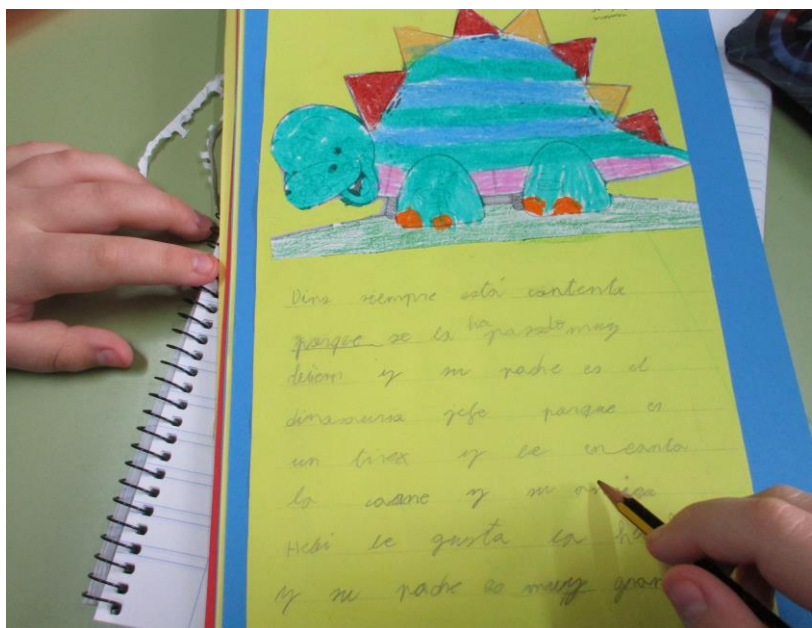 Dino siempre está contento
porque se la ha pasado muy
y su padre es el
dinosaurio jefe porque es
un tirex y le encanta
la carne y su
Hebi le gusta la
y su padre es muy